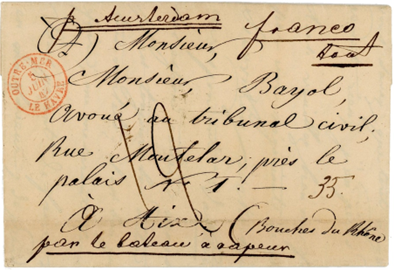 p. Amsterdam franco
Monsieur,
OUTRE-MER
LE HAVRE
Monsieur, Bayol,
avoué au tribunal civil,
Rue Montelar, près le
palais No 1. — 35.
à Aix (Bouches du Rhône
par le bateau à vapeur